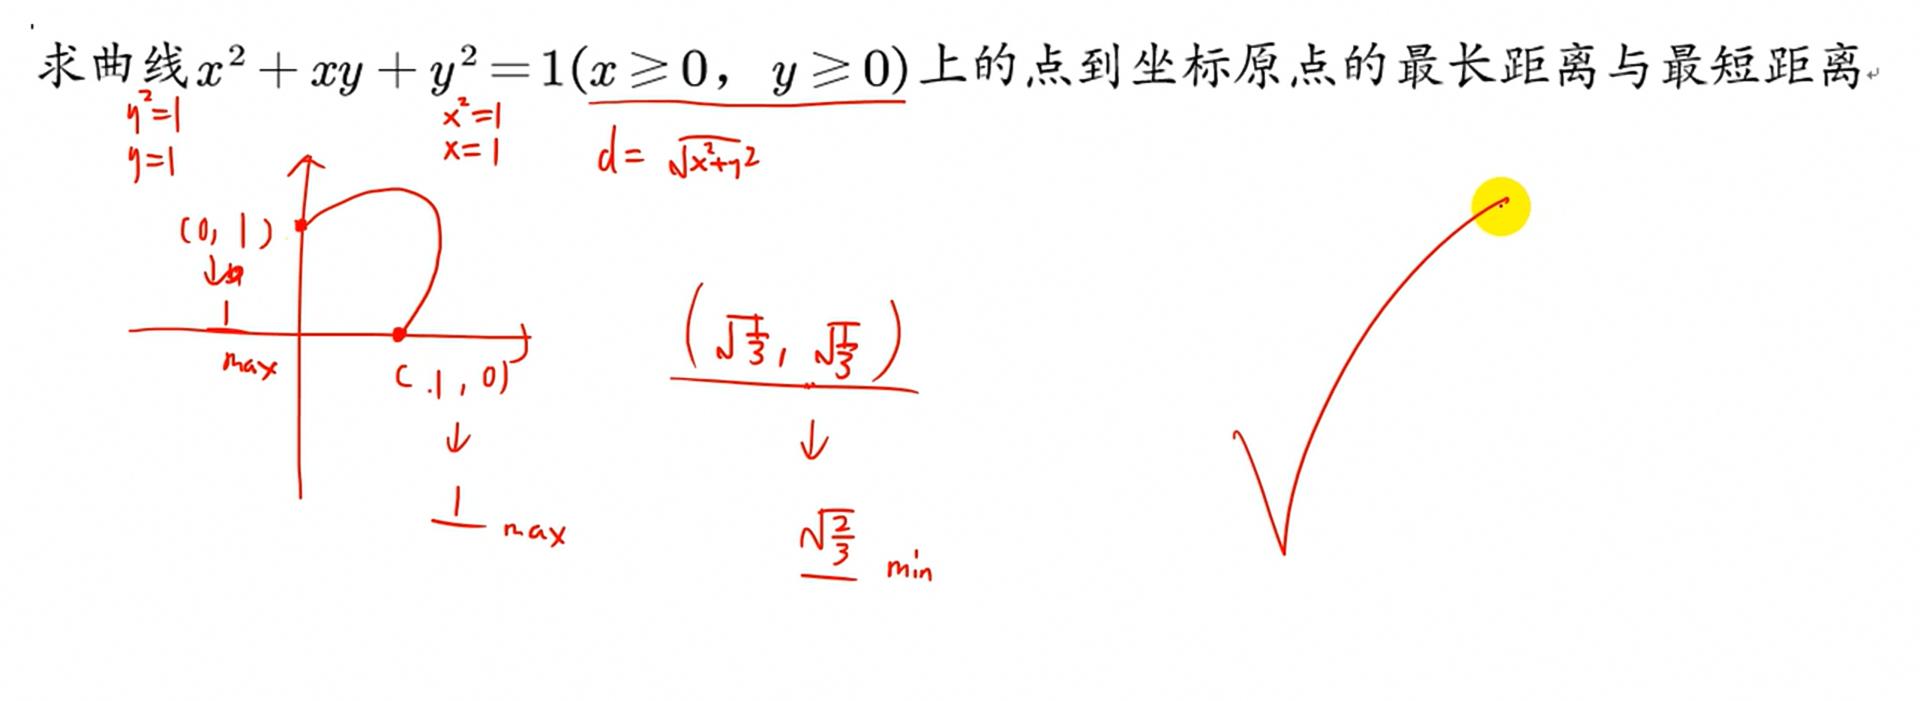 求曲线x²+xy+y²=1(x⩾0, y⩾0)上的点到坐标原点的最长距离与最短距离
y²=1
x²=1
y=1
x=1
d=√x²+y²
(0,1)
↓
1
max
(1,0)
↓
1
max
(√1/3,√1/3)
↓
√2/3
min